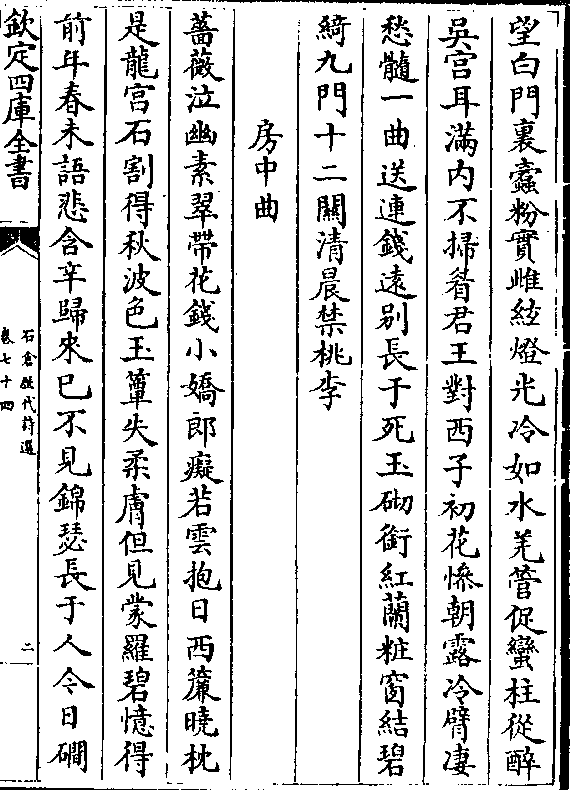 望白門裏蠧粉實雌絃燈光冷如水羌管促蠻柱從醉
吳宫耳滿内不掃眉君王對西子初花慘朝露冷臂凄
愁髓一曲送連錢逺别長于死玉砌銜紅蘭粧窗結碧
綺九門十二關清晨禁桃李
房中曲
薔薇泣幽素翠帶花錢小嬌郎癡若雲抱日西簾曉枕
是龍宫石割得秋波色玉簟失柔膚但見蒙羅碧憶得
前年春未語悲含辛歸來已不見錦瑟長于人今日磵
欽定四庫全書
石倉歷代詩選
卷七十四
二